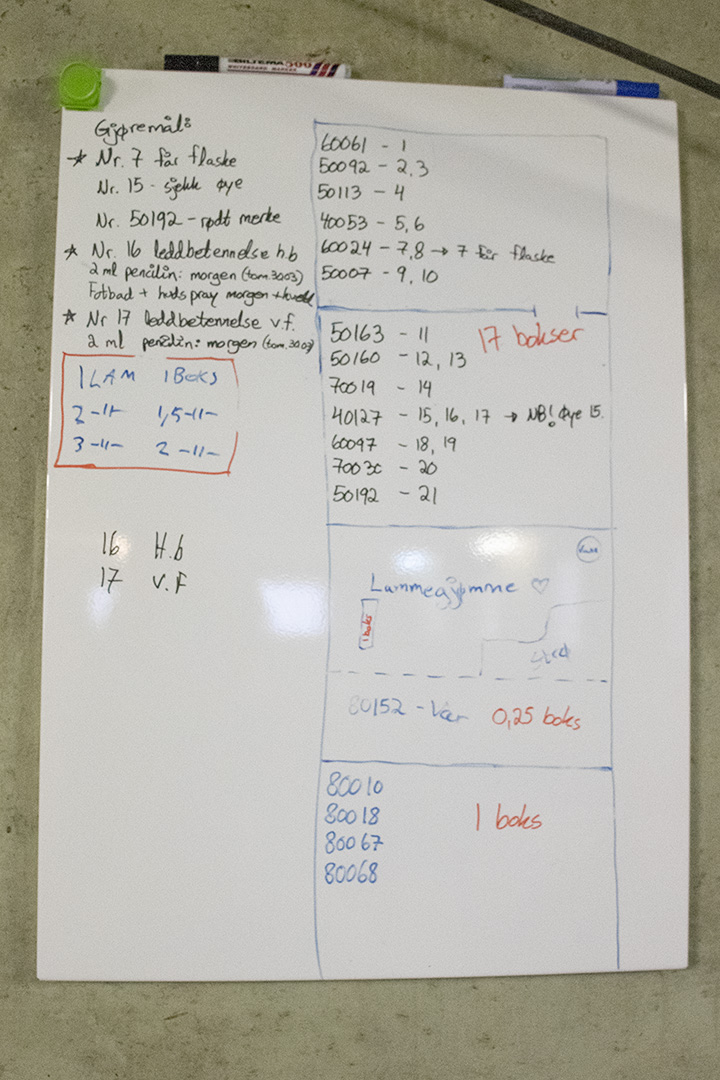 BILTEMA 500
WHITEBOARD MARKER
Gjøremål:
* Nr. 7 får flaske
Nr. 15 - sjekk øye
Nr. 50192 - rødt merke
* Nr. 16 leddbetennelse h.b
2 ml pencilin: morgen (tom. 3003)
Fotbad + hudspray morgen + kveld
* Nr 17 leddbetennelse v.f.
2 ml pencilin: morgen (tom. 3003)
1 LAM 1 BOKS
2 -11- 1,5 -11-
3 -11- 2 -11-
16 H.b
17 V.F
60061 - 1
50092 - 2,3
50113 - 4
40053 - 5,6
60024 - 7,8 → 7 får flaske
50007 - 9, 10
17 bokser
50163 - 11
50160 - 12, 13
70019 - 14
40127 - 15, 16, 17 → NB! øye 15.
60097 - 18, 19
70030 - 20
50192 - 21
Lammegjømme ♡
1 boks
80152 - Vår 0,25 boks
80010
80018
80067
80068
1 boks